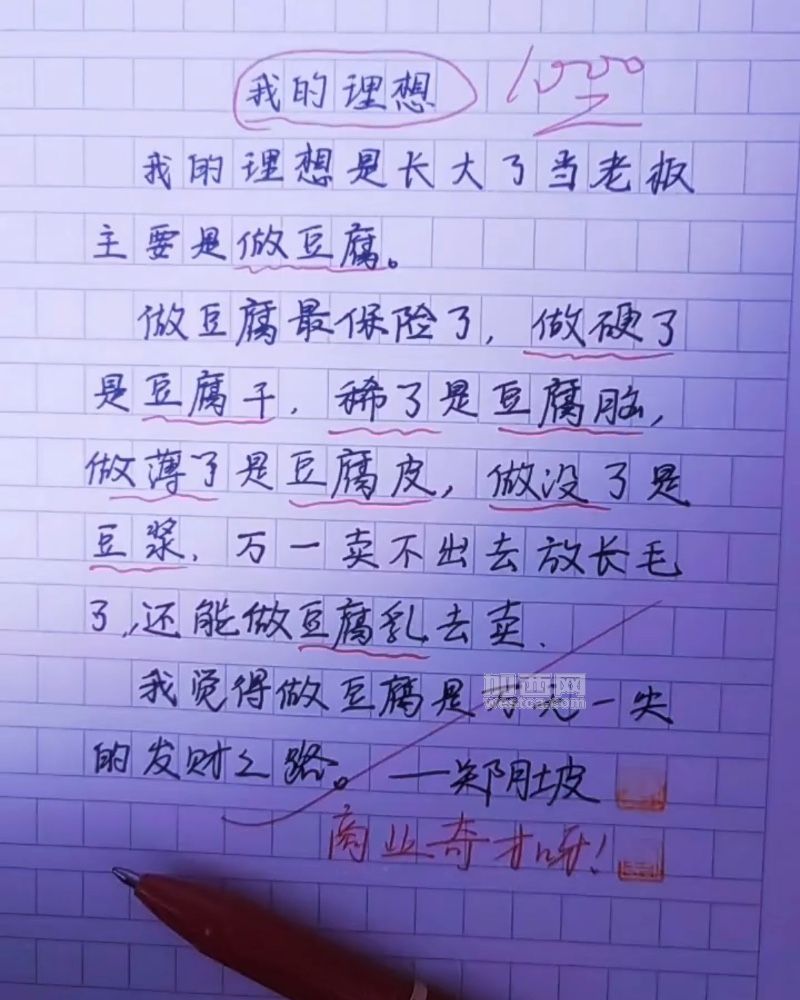 我的理想
1000
我的理想是长大了当老板
主要是做豆腐。
做豆腐最保险了，做硬了
是豆腐干，稀了是豆腐脑，
做薄了是豆腐皮，做没了是
豆浆，万一卖不出去放长毛
了，还能做豆腐乳去卖．
我觉得做豆腐是万无一失
的发财之路。——郑肚坡
商业奇才呀！
加西网
westca.com